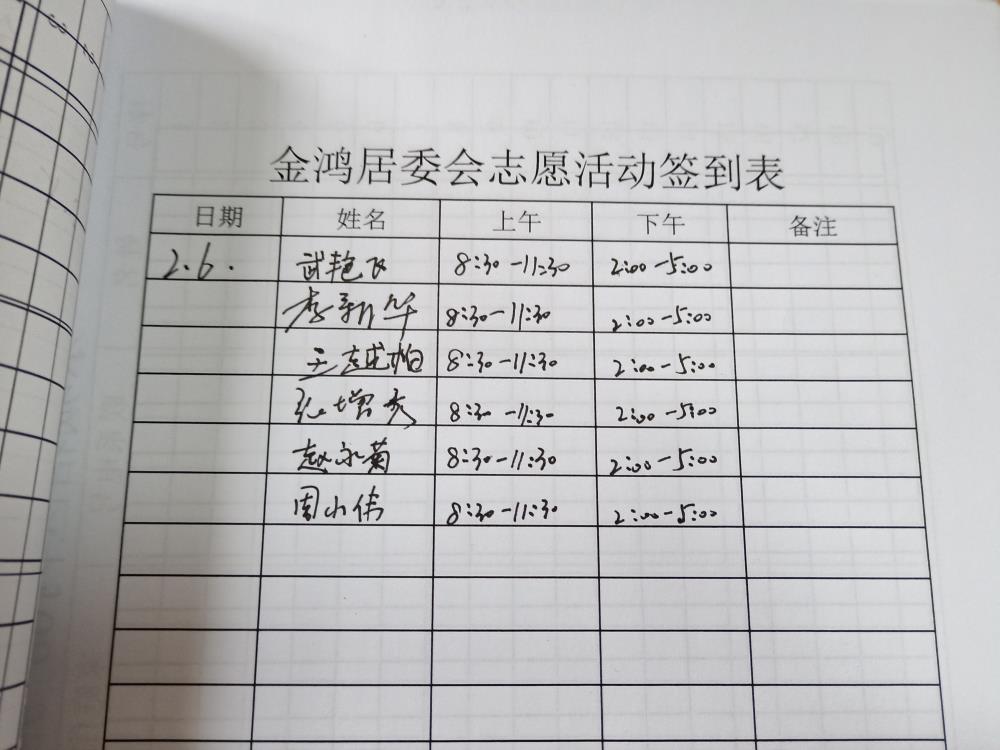 金鸿居委会志愿活动签到表
日期 姓名 上午 下午 备注
2.6. 武艳飞 8:30-11:30 2:00-5:00
李新华 8:30-11:30 2:00-5:00
王越柏 8:30-11:30 2:00-5:00
张增秀 8:30-11:30 2:00-5:00
赵永菊 8:30-11:30 2:00-5:00
周小伟 8:30-11:30 2:00-5:00